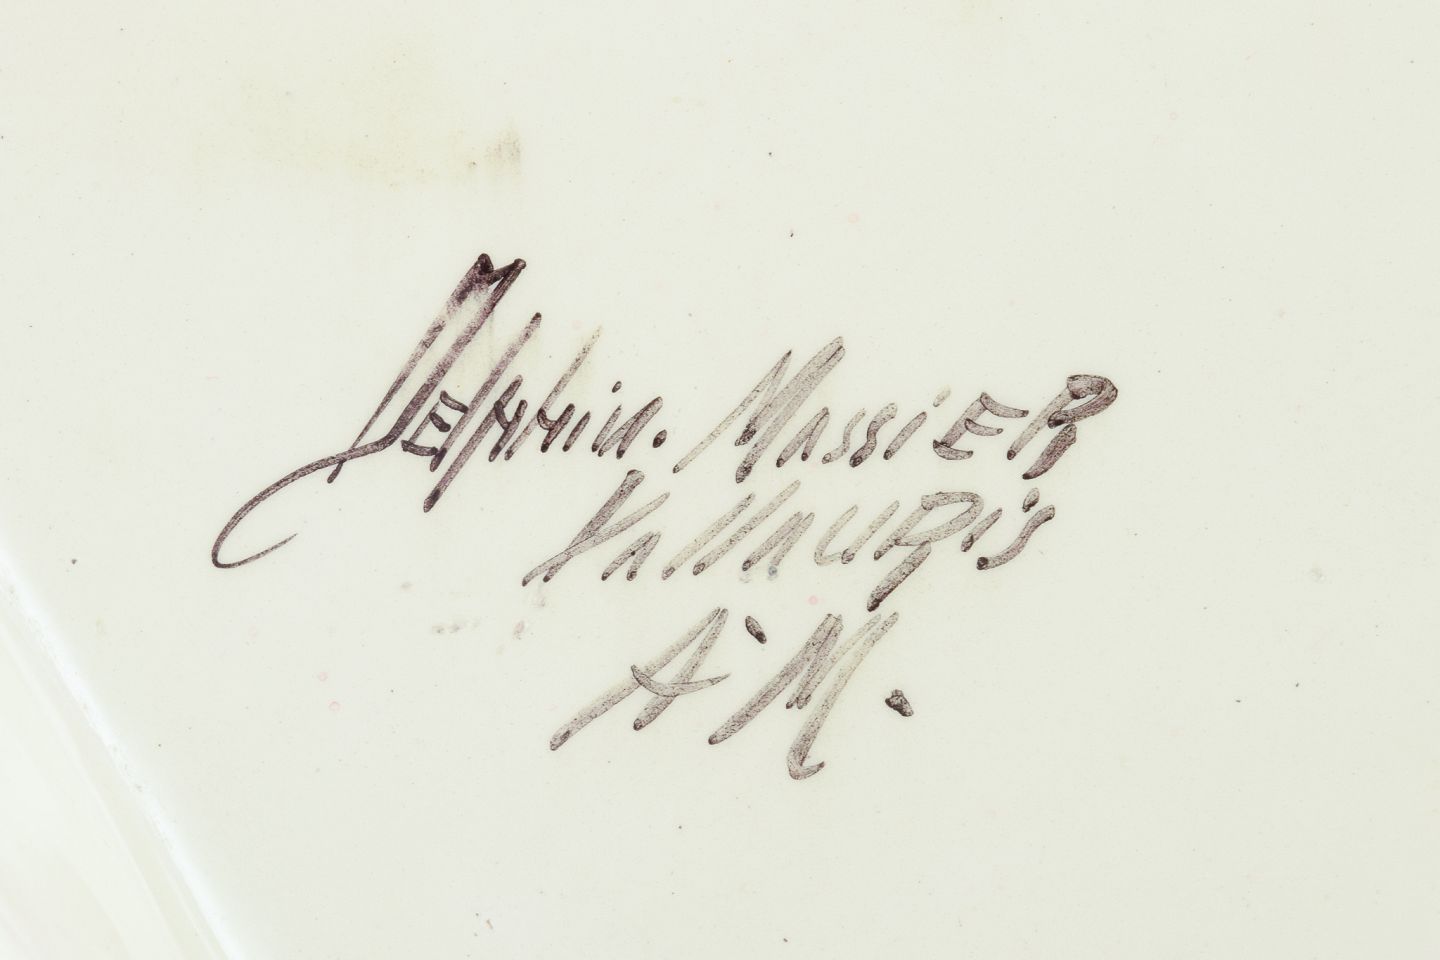 Delphin. Massier
Vallauris
A. M.